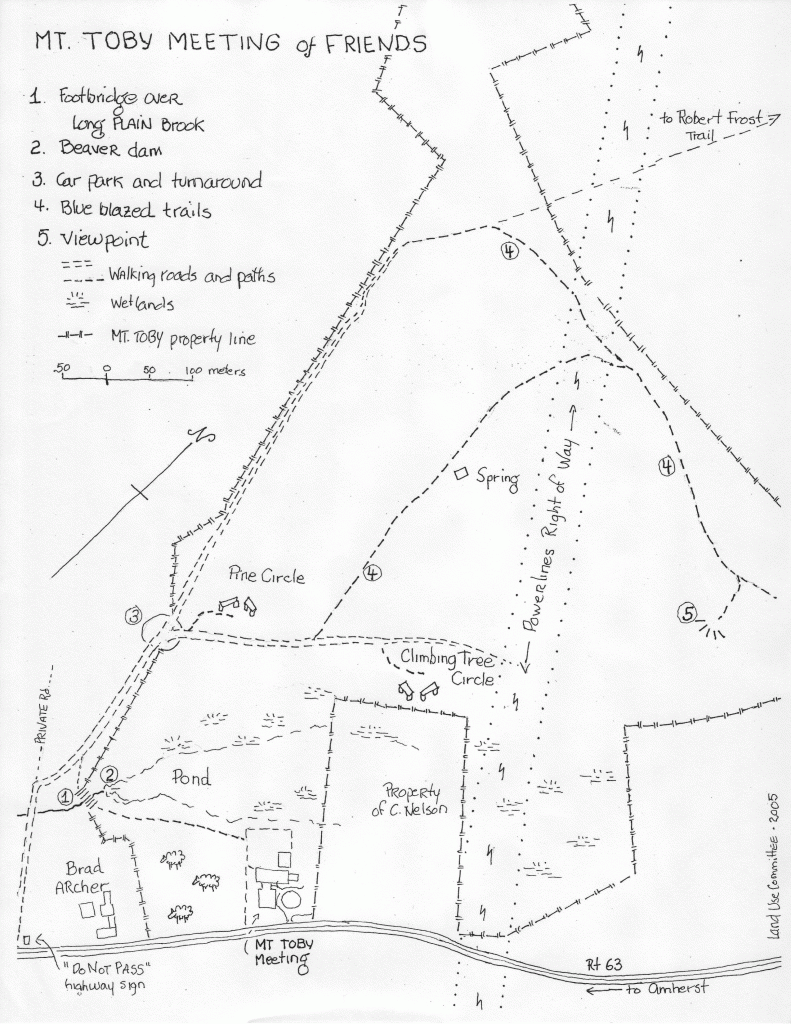 MT. TOBY MEETING of FRIENDS
1. Footbridge over
Long PLAIN BROOK
2. Beaver dam
3. Car park and turnaround
4. Blue blazed trails
5. Viewpoint
Walking roads and paths
Wetlands
MT. TOBY property line
50 0 50 100 meters
N
to Robert Frost
Trail
4
4
4
Spring
Powerlines Right of Way
Pine Circle
3
5
Climbing Tree
Circle
PRIVATE Rd.
2
1
Pond
Property
of C. Nelson
Brad
ARcher
MT TOBY
Meeting
"Do Not PASS"
highway sign
Rt 63
to Amherst
Land Use Committee • 2005